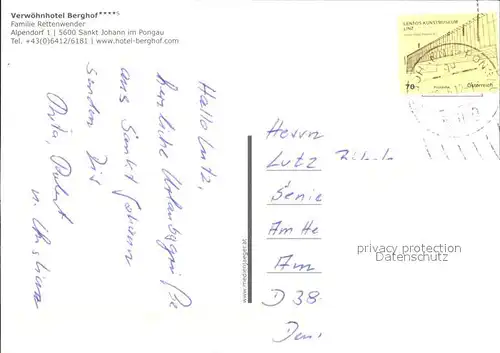 Verwöhnhotel Berghof****S
Familie Rettenwender
Alpendorf 1 | 5600 Sankt Johann im Pongau
Tel. +43(0)6412/6181 | www.hotel-berghof.com
Hallo Lutz,
herzliche Urlaubsgrüße
aus Sankt Johann
senden Dir
Rita, Robert
u. Christian
www.mediensaeger.at
LENTOS KUNSTMUSEUM
LINZ
70
Österreich
Herrn
Lutz
Senie
Am He
Am
D 38-
privacy protection
Datenschutz